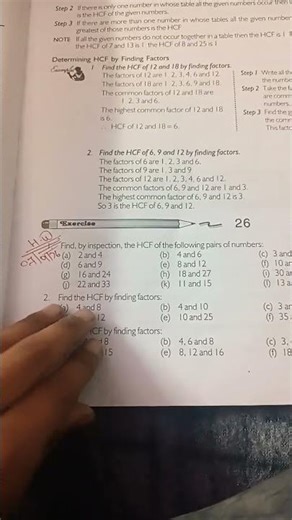 Step 2 If there is only one number in whose table all the given numbers occur then
is the HCF of the given numbers.
Step 3 If there are more than one number in whose tables all the given number
greatest of those numbers is the HCF.
NOTE If all the given numbers do not occur together in a table then the HCF is 1.
the HCF of 7 and 13 is 1. the HCF of 8 and 25 is 1
Determining HCF by Finding Factors
1. Find the HCF of 12 and 18 by finding factors.
The factors of 12 are 1, 2, 3, 4, 6 and 12
The factors of 18 are 1, 2, 3, 6, 9 and 18
The common factors of 12 and 18 are
1, 2, 3 and 6.
The highest common factor of 12 and 18
is 6.
∴ HCF of 12 and 18 = 6.
Step 1 Write all the
the number
Step 2 Take the fa
are comm
numbers.
Step 3 Find the g
the comm
This facto
2. Find the HCF of 6, 9 and 12 by finding factors.
The factors of 6 are 1, 2, 3 and 6.
The factors of 9 are 1, 3 and 9
The factors of 12 are 1, 2, 3, 4, 6 and 12.
The common factors of 6, 9 and 12 are 1 and 3.
The highest common factor of 6, 9 and 12 is 3.
So 3 is the HCF of 6, 9 and 12.
Exercise 26
Find, by inspection, the HCF of the following pairs of numbers:
(a) 2 and 4 (b) 4 and 6 (c) 3 and
(d) 6 and 9 (e) 8 and 12 (f) 10 an
(g) 16 and 24 (h) 18 and 27 (i) 30 an
(j) 22 and 33 (k) 11 and 15 (l) 13 a
2. Find the HCF by finding factors:
(a) 4 and 8 (b) 4 and 10 (c) 3 an
12 (e) 10 and 25 (f) 35
HCF by finding factors:
8 (b) 4, 6 and 8 (c) 3,
15 (e) 8, 12 and 16 (f) 18